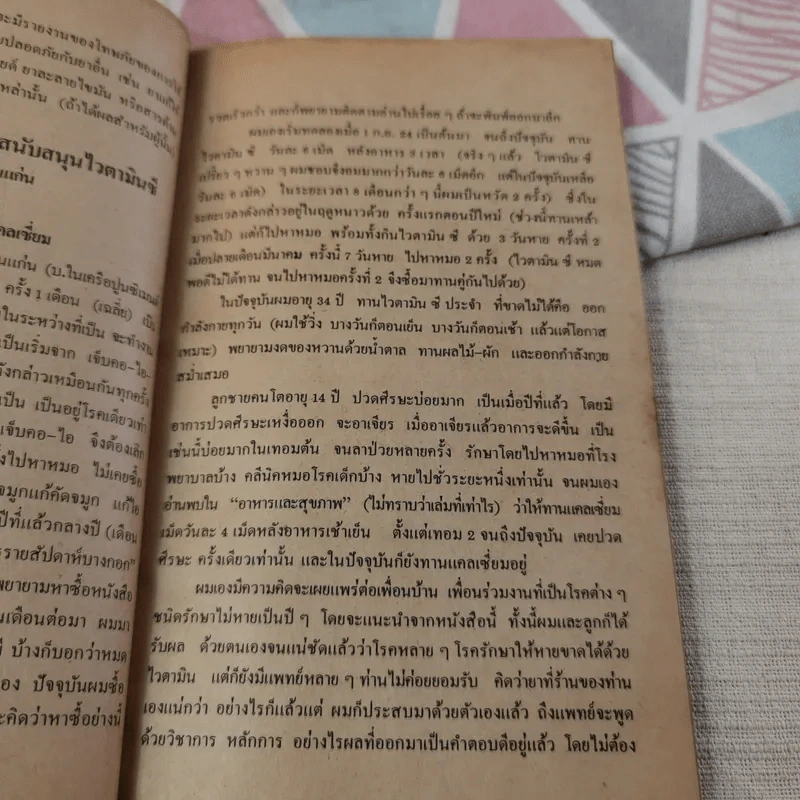 ะมีรายงานของโทษภัยของการใช้
ปลอดภัยกับยาอื่น เช่น ยาแก้ไข้
ยาละลายไขมัน หรือสารต้าน
เหล่านั้น (ถ้าได้ผลสำหรับผู้นั้น)
สนับสนุนไวตามินซี
แก่น
คลเซี่ยม
นแก่น (บ.ในเครือปูนซิเมนต์
ครั้ง 1 เดือน (เฉลี่ย) เป็น
ในระหว่างที่เป็น จะทำงาน
เป็นเริ่มจาก เจ็บคอ-ไอ-
ังกล่าวเหมือนกันทุกครั้ง
เป็น เป็นอยู่โรคเดียวเท่า
เจ็บคอ-ไอ จึงต้องเลิก
ไปหาหมอ ไม่เคยซื้อ
จมูกแก้คัดจมูก แก้ไอ
ปีที่แล้วกลางปี (เดือน
รรายสัปดาห์บางกอก"
พยายามหาซื้อหนังสือ
นเดือนต่อมา ผมมา
บ้างก็บอกว่าหมด
อง ปัจจุบันผมซื้อ
ะคิดว่าหาซื้ออย่างนี้
รวดเร็วกว่า และก็พยายามติดตามอ่านไปเรื่อย ๆ ถ้าจะพิมพ์ออกมาอีก
ผมเองเริ่มทดลองเมื่อ 1 ก.ย. 24 เป็นต้นมา จนถึงปัจจุบัน ทาน
ไวตามิน ซี วันละ ๘ เม็ด หลังอาหาร 3 เวลา (จริง ๆ แล้ว ไวตามิน ซี
เปรี้ยว ๆ หวาน ๆ ผมชอบจึงอมมากกว่าวันละ ๘ เม็ดอีก แต่ในปัจจุบันเหลือ
วันละ ๘ เม็ด) ในระยะเวลา 8 เดือนกว่า ๆ นี้ผมเป็นหวัด 2 ครั้ง) ซึ่งใน
ระยะเวลาดังกล่าวอยู่ในฤดูหนาวด้วย ครั้งแรกตอนปีใหม่ (ช่วงนี้ทานเหล้า
มากไป) แต่ก็ไปหาหมอ พร้อมทั้งกินไวตามิน ซี ด้วย 3 วันหาย ครั้งที่ 2
เมื่อปลายเดือนมีนาคม ครั้งนี้ 7 วันหาย ไปหาหมอ 2 ครั้ง (ไวตามิน ซี หมด
พอดีไม่ได้ทาน จนไปหาหมอครั้งที่ 2 จึงซื้อมาทานคู่กันไปด้วย)
ในปัจจุบันผมอายุ 34 ปี ทานไวตามิน ซี ประจำ ที่ขาดไม่ได้คือ ออก
กำลังกายทุกวัน (ผมใช้วิ่ง บางวันก็ตอนเย็น บางวันก็ตอนเช้า แล้วแต่โอกาส
เหมาะ) พยายามงดของหวานด้วยน้ำตาล ทานผลไม้-ผัก และออกกำลังกาย
สม่ำเสมอ
ลูกชายคนโตอายุ 14 ปี ปวดศีรษะบ่อยมาก เป็นเมื่อปีที่แล้ว โดยมี
อาการปวดศีรษะเหงื่อออก จะอาเจียร เมื่ออาเจียรแล้วอาการจะดีขึ้น เป็น
เช่นนี้บ่อยมากในเทอมต้น จนลาป่วยหลายครั้ง รักษาโดยไปหาหมอที่โรง
พยาบาลบ้าง คลีนิคหมอโรคเด็กบ้าง หายไปชั่วระยะหนึ่งเท่านั้น จนผมเอง
อ่านพบใน "อาหารและสุขภาพ" (ไม่ทราบว่าเล่มที่เท่าไร) ว่าให้ทานแคลเซี่ยม
เม็ดวันละ 4 เม็ดหลังอาหารเช้าเย็น ตั้งแต่เทอม 2 จนถึงปัจจุบัน เคยปวด
ศีรษะ ครั้งเดียวเท่านั้น และในปัจจุบันก็ยังทานแคลเซี่ยมอยู่
ผมเองมีความคิดจะเผยแพร่ต่อเพื่อนบ้าน เพื่อนร่วมงานที่เป็นโรคต่าง ๆ
ชนิดรักษาไม่หายเป็นปี ๆ โดยจะแนะนำจากหนังสือนี้ ทั้งนี้ผมและลูกก็ได้
รับผล ด้วยตนเองจนแน่ชัดแล้วว่าโรคหลาย ๆ โรครักษาให้หายขาดได้ด้วย
ไวตามิน แต่ก็ยังมีแพทย์หลาย ๆ ท่านไม่ค่อยยอมรับ คิดว่ายาที่ร้านของท่าน
เองแน่กว่า อย่างไรก็แล้วแต่ ผมก็ประสบมาด้วยตัวเองแล้ว ถึงแพทย์จะพูด
ด้วยวิชาการ หลักการ อย่างไรผลที่ออกมาเป็นคำตอบดีอยู่แล้ว โดยไม่ต้อง